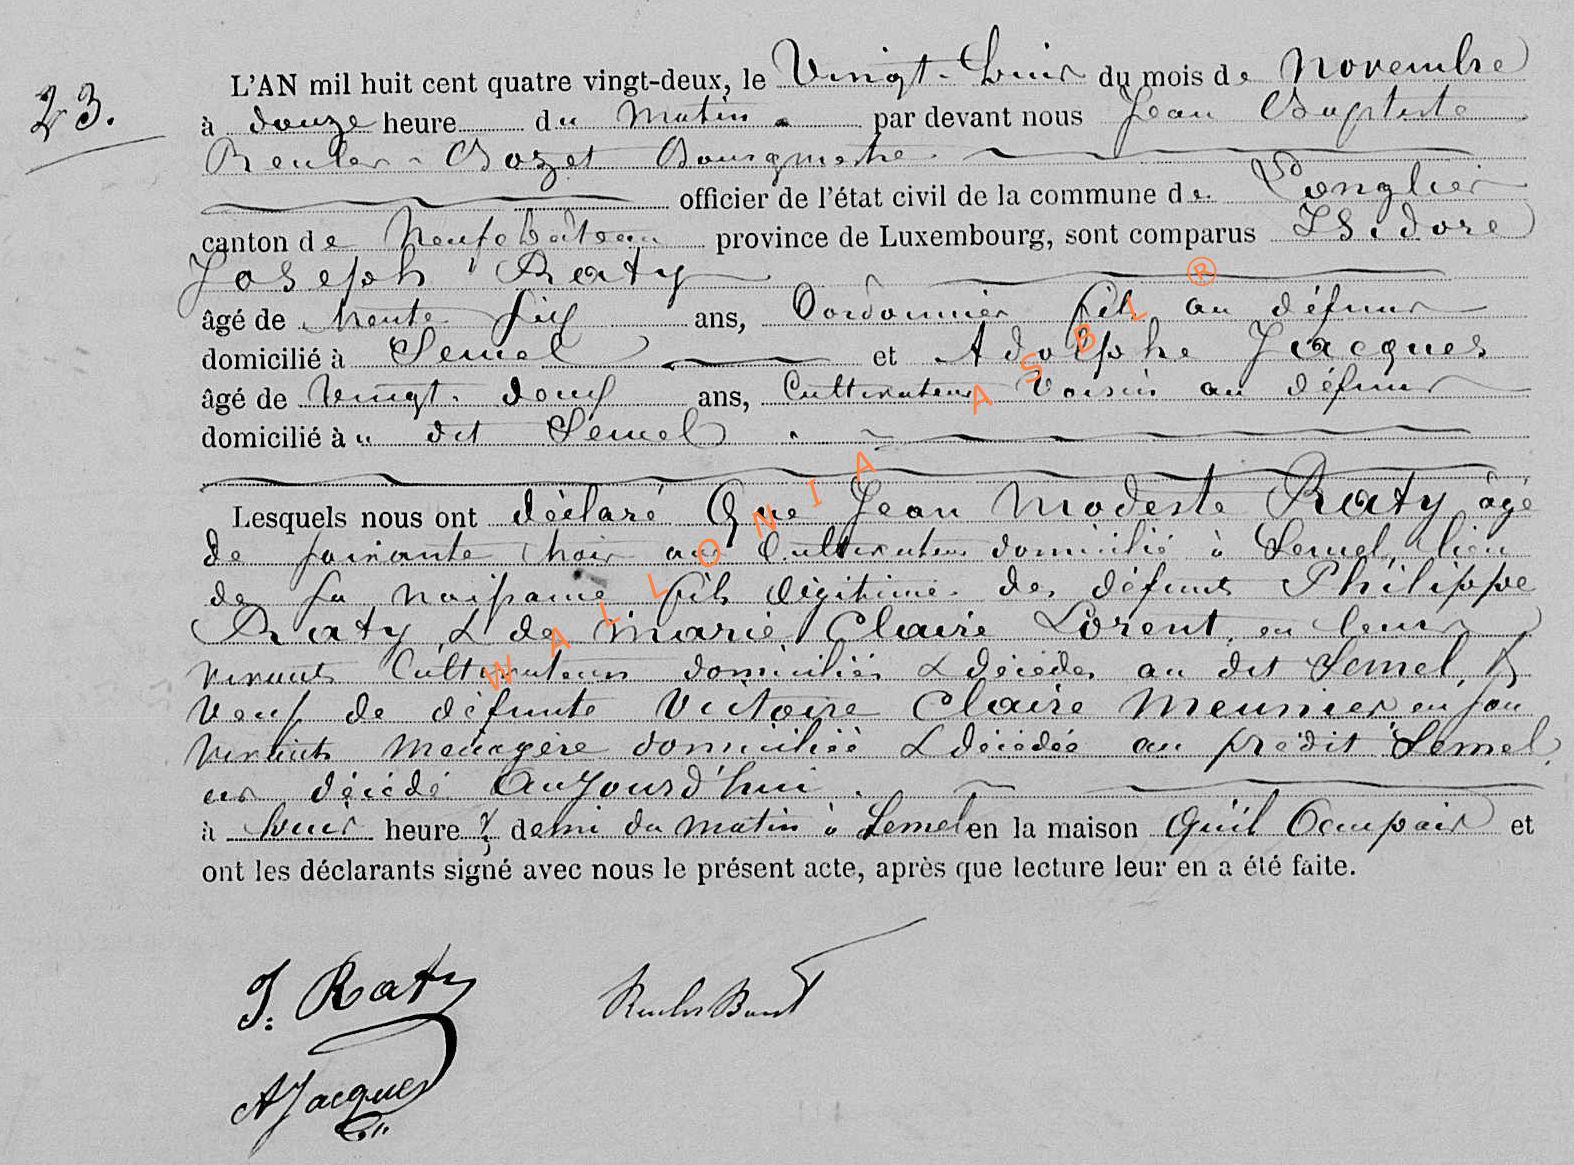 23.
L'AN mil huit cent quatre vingt-deux, le Vingt-huit du mois de Novembre
à douze heure du Matin par devant nous Jean Baptiste
Reuler-Bozet Bourgmestre
officier de l'état civil de la commune de Longlier
canton de Neufchâteau province de Luxembourg, sont comparus Isidore
Joseph Raty
âgé de trente six ans, Cordonnier fils au défunt
domicilié à Semel et Adolphe Jacques
âgé de Vingt-deux ans, Cultivateur Voisin au défunt
domicilié à u dit Semel
Lesquels nous ont déclaré Que Jean Modeste Raty âgé
de soixante trois ans Cultivateur domicilié à Semel, lieu
de sa naissance fils légitime des défunts Philippe
Raty & de Marie Claire Lorent, en leur
vivants Cultivateurs domiciliés & décédés au dit Semel, &
Veuf de défunte Victoire Claire Meunier en son
vivants Ménagère domiciliée & décédée au prédit Semel,
est décédé Aujourd'hui
à huit heure & demi du matin à Semel en la maison Qu'il Occupait et
ont les déclarants signé avec nous le présent acte, après que lecture leur en a été faite.
J. Raty
A Jacques
WALLONIA ASBL ®